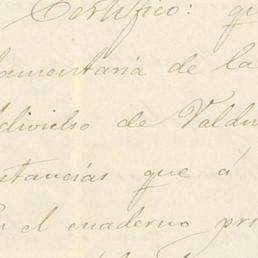 Certifico: qu
lamentaria de la
divielso de Valdu
stancias que á
n el cuaderno pri